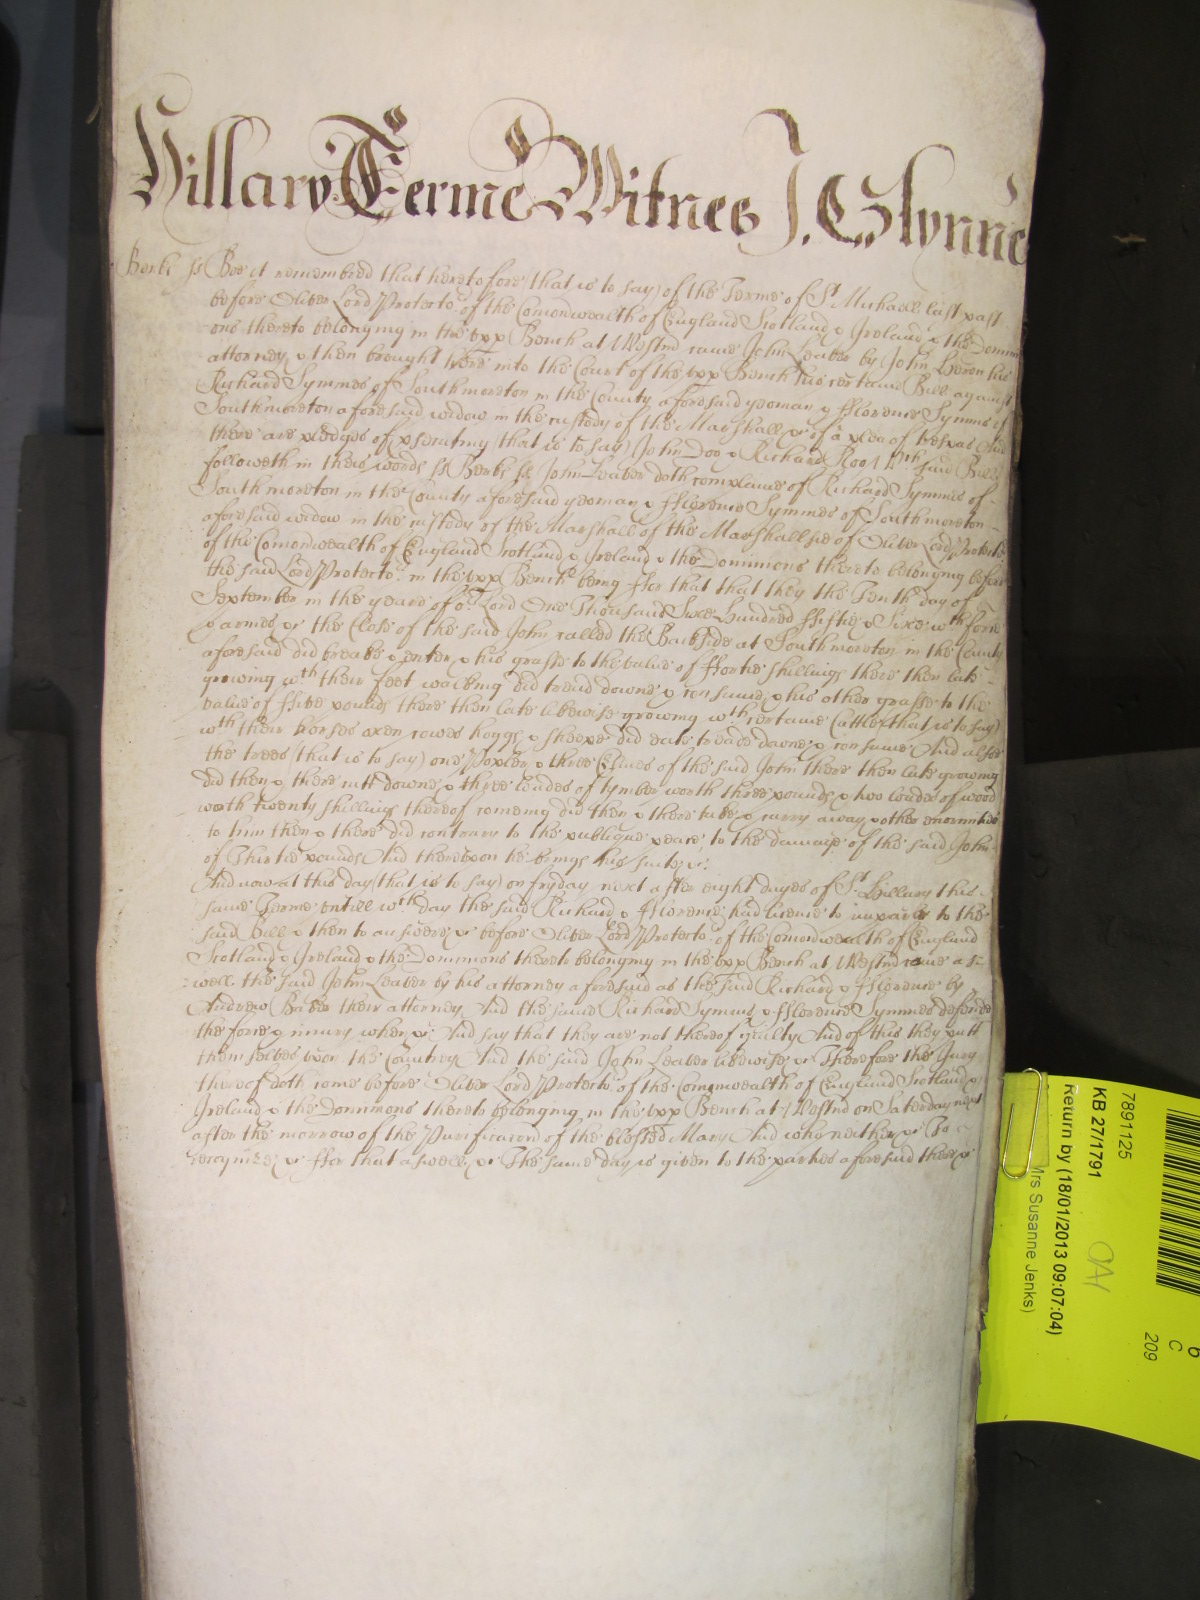 Hillary Terme Witnes J. Glynne
Berks ss Bee it remembred that heretofore (that is to say) of the Terme of St. Michaell last past
before Oliver Lord Protector of the Comonwealth of England Scotland & Ireland & the Domini
ons thereto belonging in the upp Bench at Westmr came John Leaver by John Heron his
attorney & then brought here into the Court of the upp Bench his certaine Bill against
Richard Symmes of Southmoreton in the County aforesaid yeoman & fflorence Symms of
Southmoreton aforesaid widow in the custody of the Marshall &c of a plea of trespas And
there are pledges of psecuting (that is to say) John Doo & Richard Roo Wch said Bill
followeth in these words ss Berks ss John Leaver doth complaine of Richard Symmes of
Southmoreton in the County aforesaid yeoman & fflorence Symmes of Southmoreton
aforesaid widow in the custody of the Marshall of the Marshallsie of Oliver Lord Protector
of the Comonwealth of England Scotland & Ireland & the Dominions thereto belonging before
the said Lord Protector in the upp Bench being ffor that that they the Tenth day of
September in the yeare of or. Lord One Thousand Sixe Hundred ffiftie & Sixe wth force
& armes &c the Close of the said John called the Backside at Southmoreton in the County
aforesaid did breake & enter & his grasse to the value of ffortie shillings there then late
growing wth their feet walking did tread downe & consume & his other grasse to the
value of ffive pounds there then late likewise growing wth certaine Cattle (that is to say)
wth their horses oxen cowes hoggs & sheepe did eate treade downe & consume And alsoe
the trees (that is to say) one Popler & three Elmes of the said John there then late growing
did then & there cutt downe & three loades of tymber worth three pounds & two loades of wood
worth twenty shillings thereof comeing did then & there take & carry away & other enormities
to him then & there did contrary to the publique peace to the damage of the said John
of Thirtie pounds And thereupon he brings his suite &c.
And now at this day (that is to say) on fryday next after eight dayes of St. Hillary this
same Terme untill wch day the said Richard & fflorence had licence to imparle to the
said Bill & then to answere &c before Oliver Lord Protector of the Comonwealth of England
Scotland & Ireland & the Dominions thereto belonging in the upp Bench at Westmr came as
well the said John Leaver by his attorney aforesaid as the said Richard & fflorence by
Andrew Baker their attorney And the same Richard Symms & fflorence Symmes defende
the force & iniury when &c And say that they are not thereof guilty And of this they putt
themselves upon the Countrey And the said John Leaver likewise &c Therefore the Jury
thereof doth come before Oliver Lord Protector of the Comonwealth of England Scotland &
Ireland & the Dominions thereto belonging in the upp Bench at Westmr on Saterday next
after the morrow of the Purificacon of the blessed Mary And who neither &c To
recognize &c ffor that aswell &c The same day is given to the parties aforesaid there &c
7891125
KB 27/1791
Return by (18/01/2013 09:07:04)
Mrs Susanne Jenks)
OA1
209
C